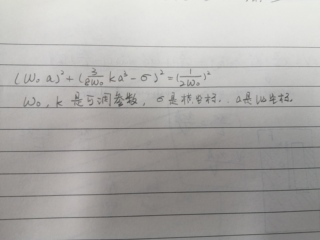 (W₀ a)² + (3/8W₀ k a³ - σ)² = (1/2W₀)²
W₀, k 是可调参数, σ是横坐标, a是纵坐标.